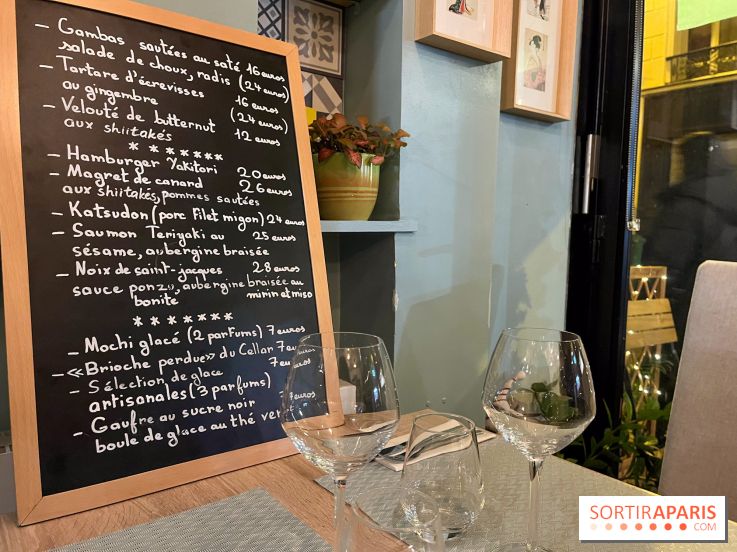 - Gambas sautées au saté 16 euros
salade de choux, radis (24 euros)
- Tartare d'écrevisses 16 euros
au gingembre (24 euros)
- Velouté de butternut 12 euros
aux shiitakés
* * * * * * *
- Hamburger Yakitori 20 euros
- Magret de canard 26 euros
aux shiitakés, pommes sautées
- Katsudon (porc filet migon) 24 euros
- Saumon Teriyaki au 25 euros
sésame, aubergine braisée
- Noix de saint-jacques 28 euros
sauce ponzu, aubergine braisée au
bonite mirin et miso
* * * * * * *
- Mochi glacé (2 parfums) 7 euros
- «Brioche perdue» du Cellar 7 euros
- Sélection de glace 7 euros
artisanales (3 parfums)
- Gaufre au sucre noir euros
boule de glace au thé vert
SORTIRAPARIS
.COM